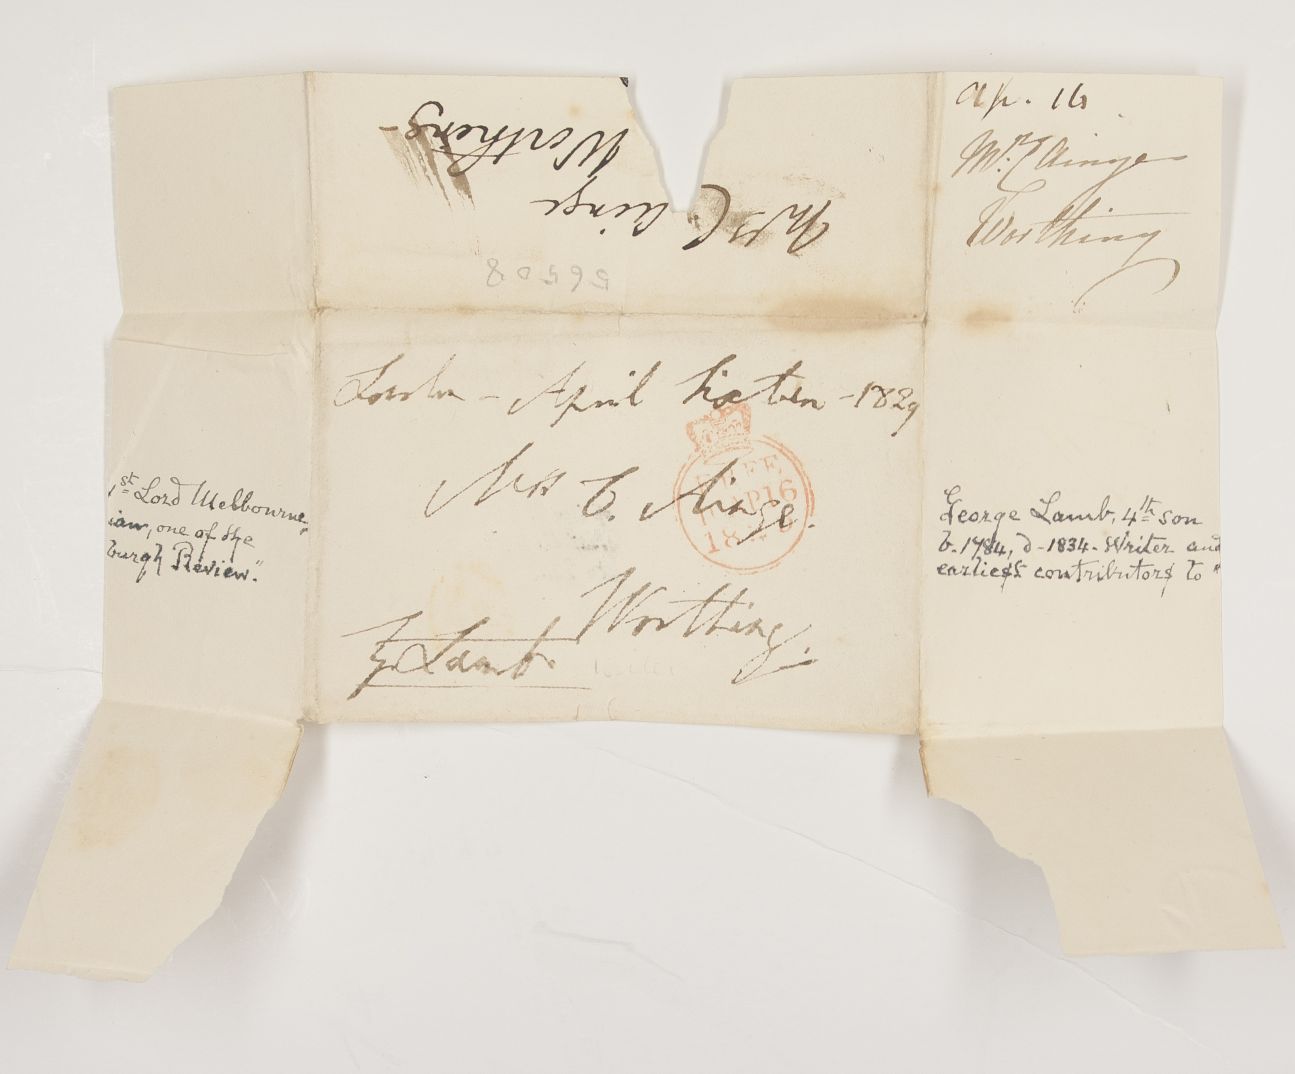 Ap. 16
Mrs C Ainge
Worthing
Mrs C. Ainge
Worthing
56508
London - April Sixteen - 1829
Mrs C. Ainge.
Worthing
G. Lamb
FREE
AP 16
George Lamb, 4th son
b. 1784, d - 1834. Writer and
earliest contributors to "
1st Lord Melbourne,
ian, one of the
burgh Review."